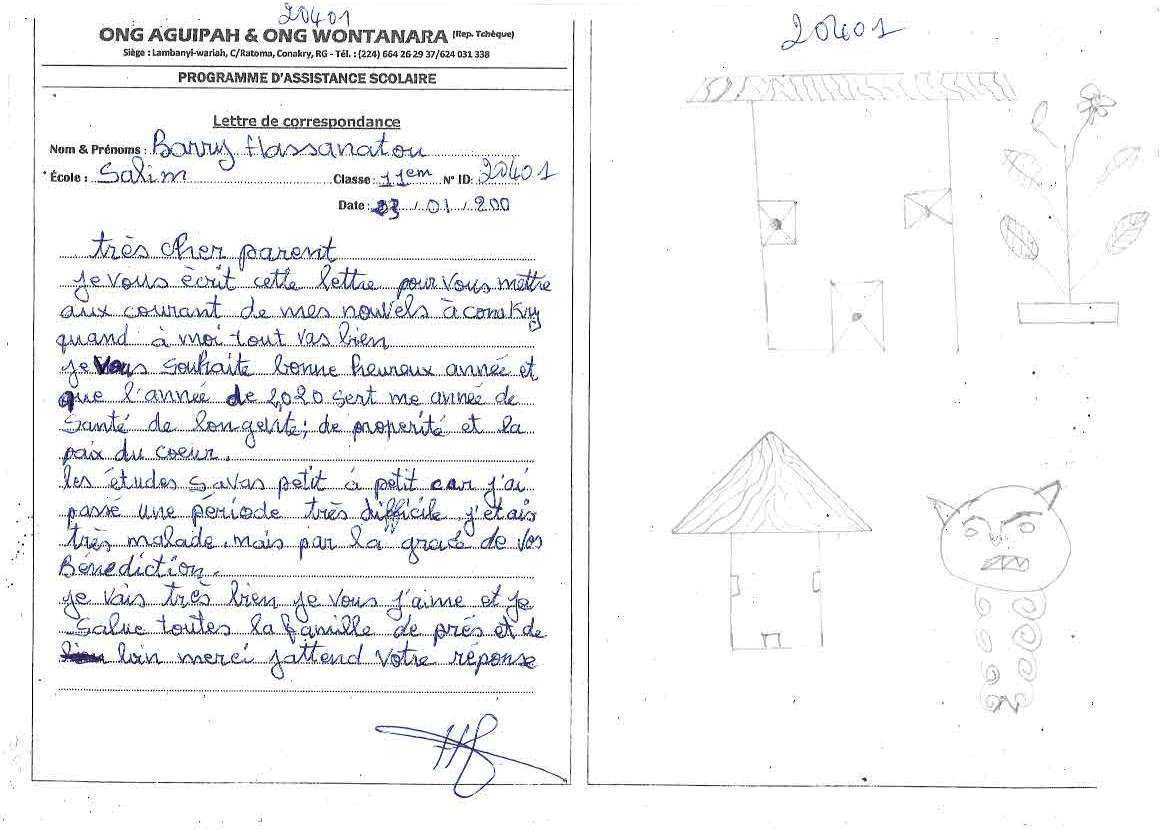 20401
ONG AGUIPAH & ONG WONTANARA (Rep. Tchèque)
Siège : Lambanyi-wariah, C/Ratoma, Conakry, RG - Tél. : (224) 664 26 29 37/624 031 338
PROGRAMME D'ASSISTANCE SCOLAIRE
Lettre de correspondance
Nom & Prénoms : Barry Hassanatou
École : Salim Classe : 11em N° ID: 20401
Date : 23 / 01 / 200
très cher parent
je vous écrit cette lettre pour vous mettre
aux courant de mes nouvels à conakry
quand à moi tout vas bien
je vous souhaite bonne heureux année et
que l'année de 2020 sert me année de
santé de longevité; de properité et la
paix du coeur.
les études savas petit à petit car j'ai
passé une période très difficile j'étais
très malade. mais par la gracé de vos
Bénediction.
je vais très bien je vous j'aime et je
salue toutes la famille de près et de
loin merci j'attend votre réponse
HB
20401